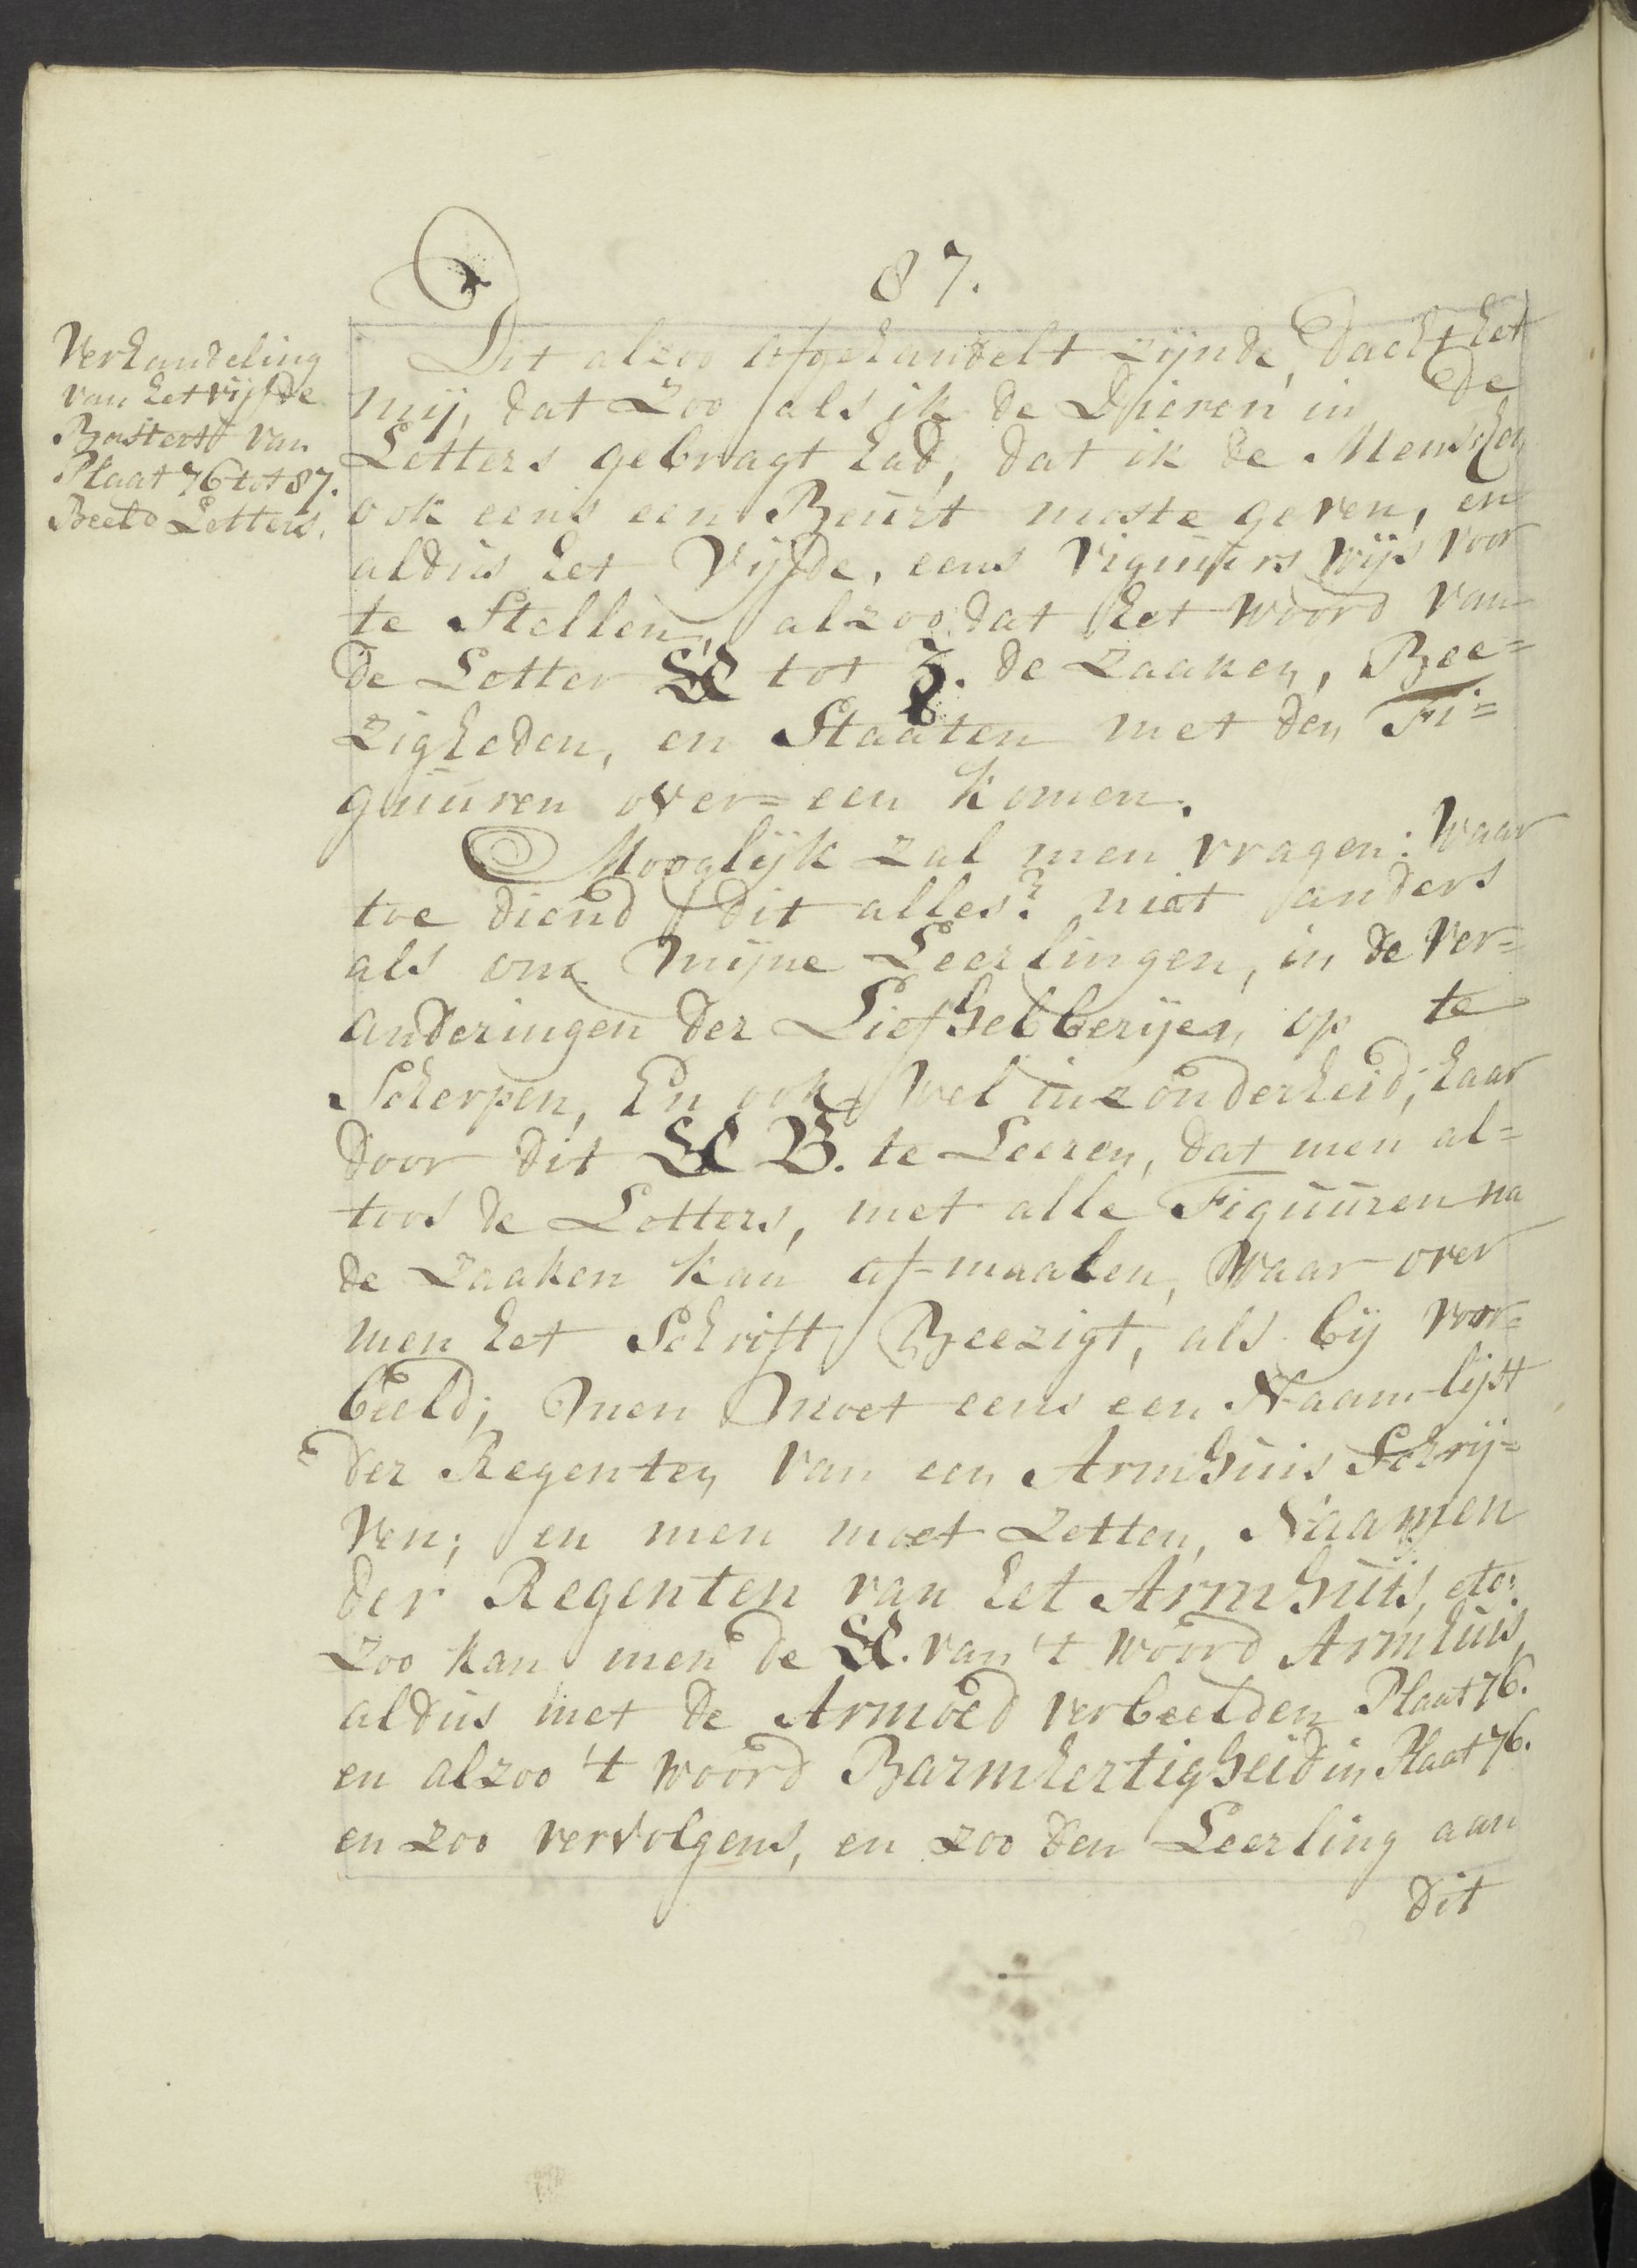 87.
Verhandeling
van het vijfde
Basterdt van
Plaat 76 tot 87.
Beeld Letters.
Dit alzoo afgehandelt zijnde, dacht het
mij, dat Zoo als ik de Dieren in de
Letters gebragt had, dat ik de Menschen
ook eens een Beurt moste geven, en
aldus het Vijfde, eens Viguurs wijs voor
te Stellen, alzoo dat het woord van
de Letter A tot Z. de Zaaken, Bee=
zigheden, en Staaten met den Fi=
guuren over=een komen.
Mooglijk zal men vragen: Waar
toe diend dit alles? niet anders
als om mijne Leerlingen, in de Ver=
anderingen der Liefhebberijen, op te
Scherpen, En ook wel inzonderheid, haar
door dit A B. te Leeren, dat men al=
toos de Letters, met alle Figuuren na
de Zaaken kan af-maalen, Waar over
men het Schrift Beezigt, als bij voor=
beeld; Men moet eens een Naam-lijst
der Regenten van een Armhuis Schrij=
ven; en men moet Zetten, Naamen
der Regenten van het Armhuis, etc:
Zoo kan men de A. van 't woord Armhuis,
aldus met de Armoed verbeelden Plaat 76.
en alzoo 't woord Barmhertigheid in Plaat 76.
en zoo vervolgens, en zoo den Leerling aan
dit